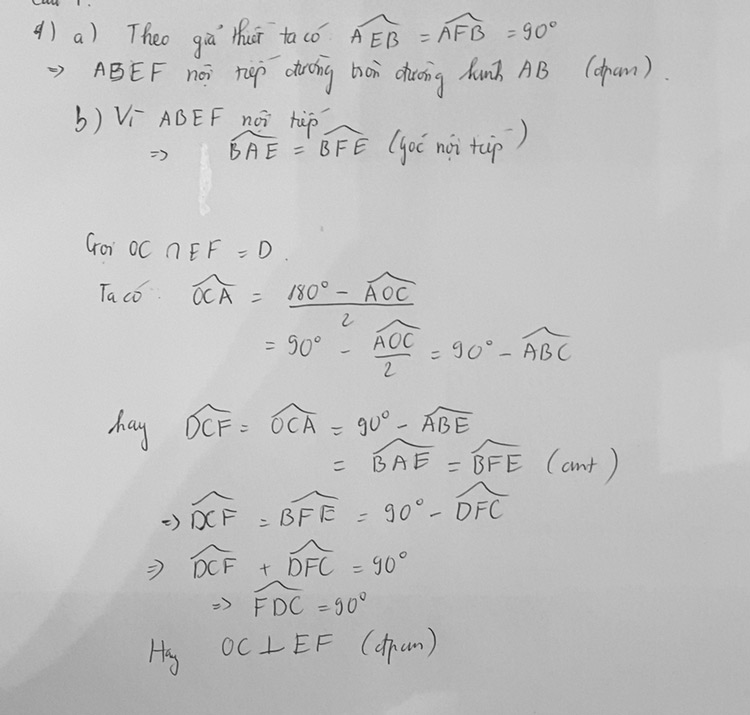 Câu 4.
4) a) Theo giả thiết ta có \widehat{AEB} = \widehat{AFB} = 90°
=> ABEF nội tiếp đường tròn đường kính AB (đpcm).
b) Vì ABEF nội tiếp
=> \widehat{BAE} = \widehat{BFE} (góc nội tiếp)
Gọi OC ∩ EF = D.
Ta có \widehat{OCA} = \frac{180° - \widehat{AOC}}{2}
= 90° - \frac{\widehat{AOC}}{2} = 90° - \widehat{ABC}
hay \widehat{DCF} = \widehat{OCA} = 90° - \widehat{ABE}
= \widehat{BAE} = \widehat{BFE} (cmt)
=> \widehat{DCF} = \widehat{BFE} = 90° - \widehat{DFC}
=> \widehat{DCF} + \widehat{DFC} = 90°
=> \widehat{FDC} = 90°
Hay OC ⊥ EF (đpcm)